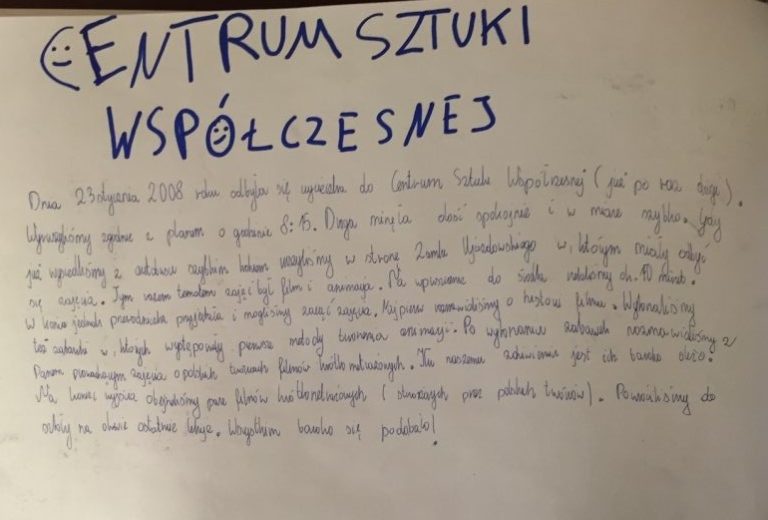 CENTRUM SZTUKI
WSPÓŁCZESNEJ
Dnia 23 stycznia 2008 roku odbyła się wycieczka do Centrum Sztuki Współczesnej (już po raz drugi).
Wyruszyliśmy zgodnie z planem o godzinie 8:15. Droga minęła dość spokojnie i w miarę szybko. Gdy
już wysiedliśmy z autobusu szybkim krokiem ruszyliśmy w stronę Zamku Ujazdowskiego w, którym miały odbyć
się zajęcia. Tym razem tematem zajęć był film i animacja. Na wpuszczenie do środka czekaliśmy ok. 10 minut.
W końcu jednak przewodniczka przyszła i mogliśmy zacząć zajęcia. Najpierw rozmawialiśmy o historii filmu. Wykonaliśmy
też zabawki w, których występowały pierwsze metody tworzenia animacji. Po wykonaniu zabawek rozmawialiśmy z
Panem prowadzącym zajęcia o polskich twórcach filmów krótkometrażowych. Ku naszemu zdziwieniu jest ich bardzo dużo.
Na koniec wyjścia obejrzeliśmy parę filmów krótkometrażowych (stworzonych przez polskich twórców). Powróciliśmy do
szkoły na dwie ostatnie lekcje. Wszystkim bardzo się podobało!